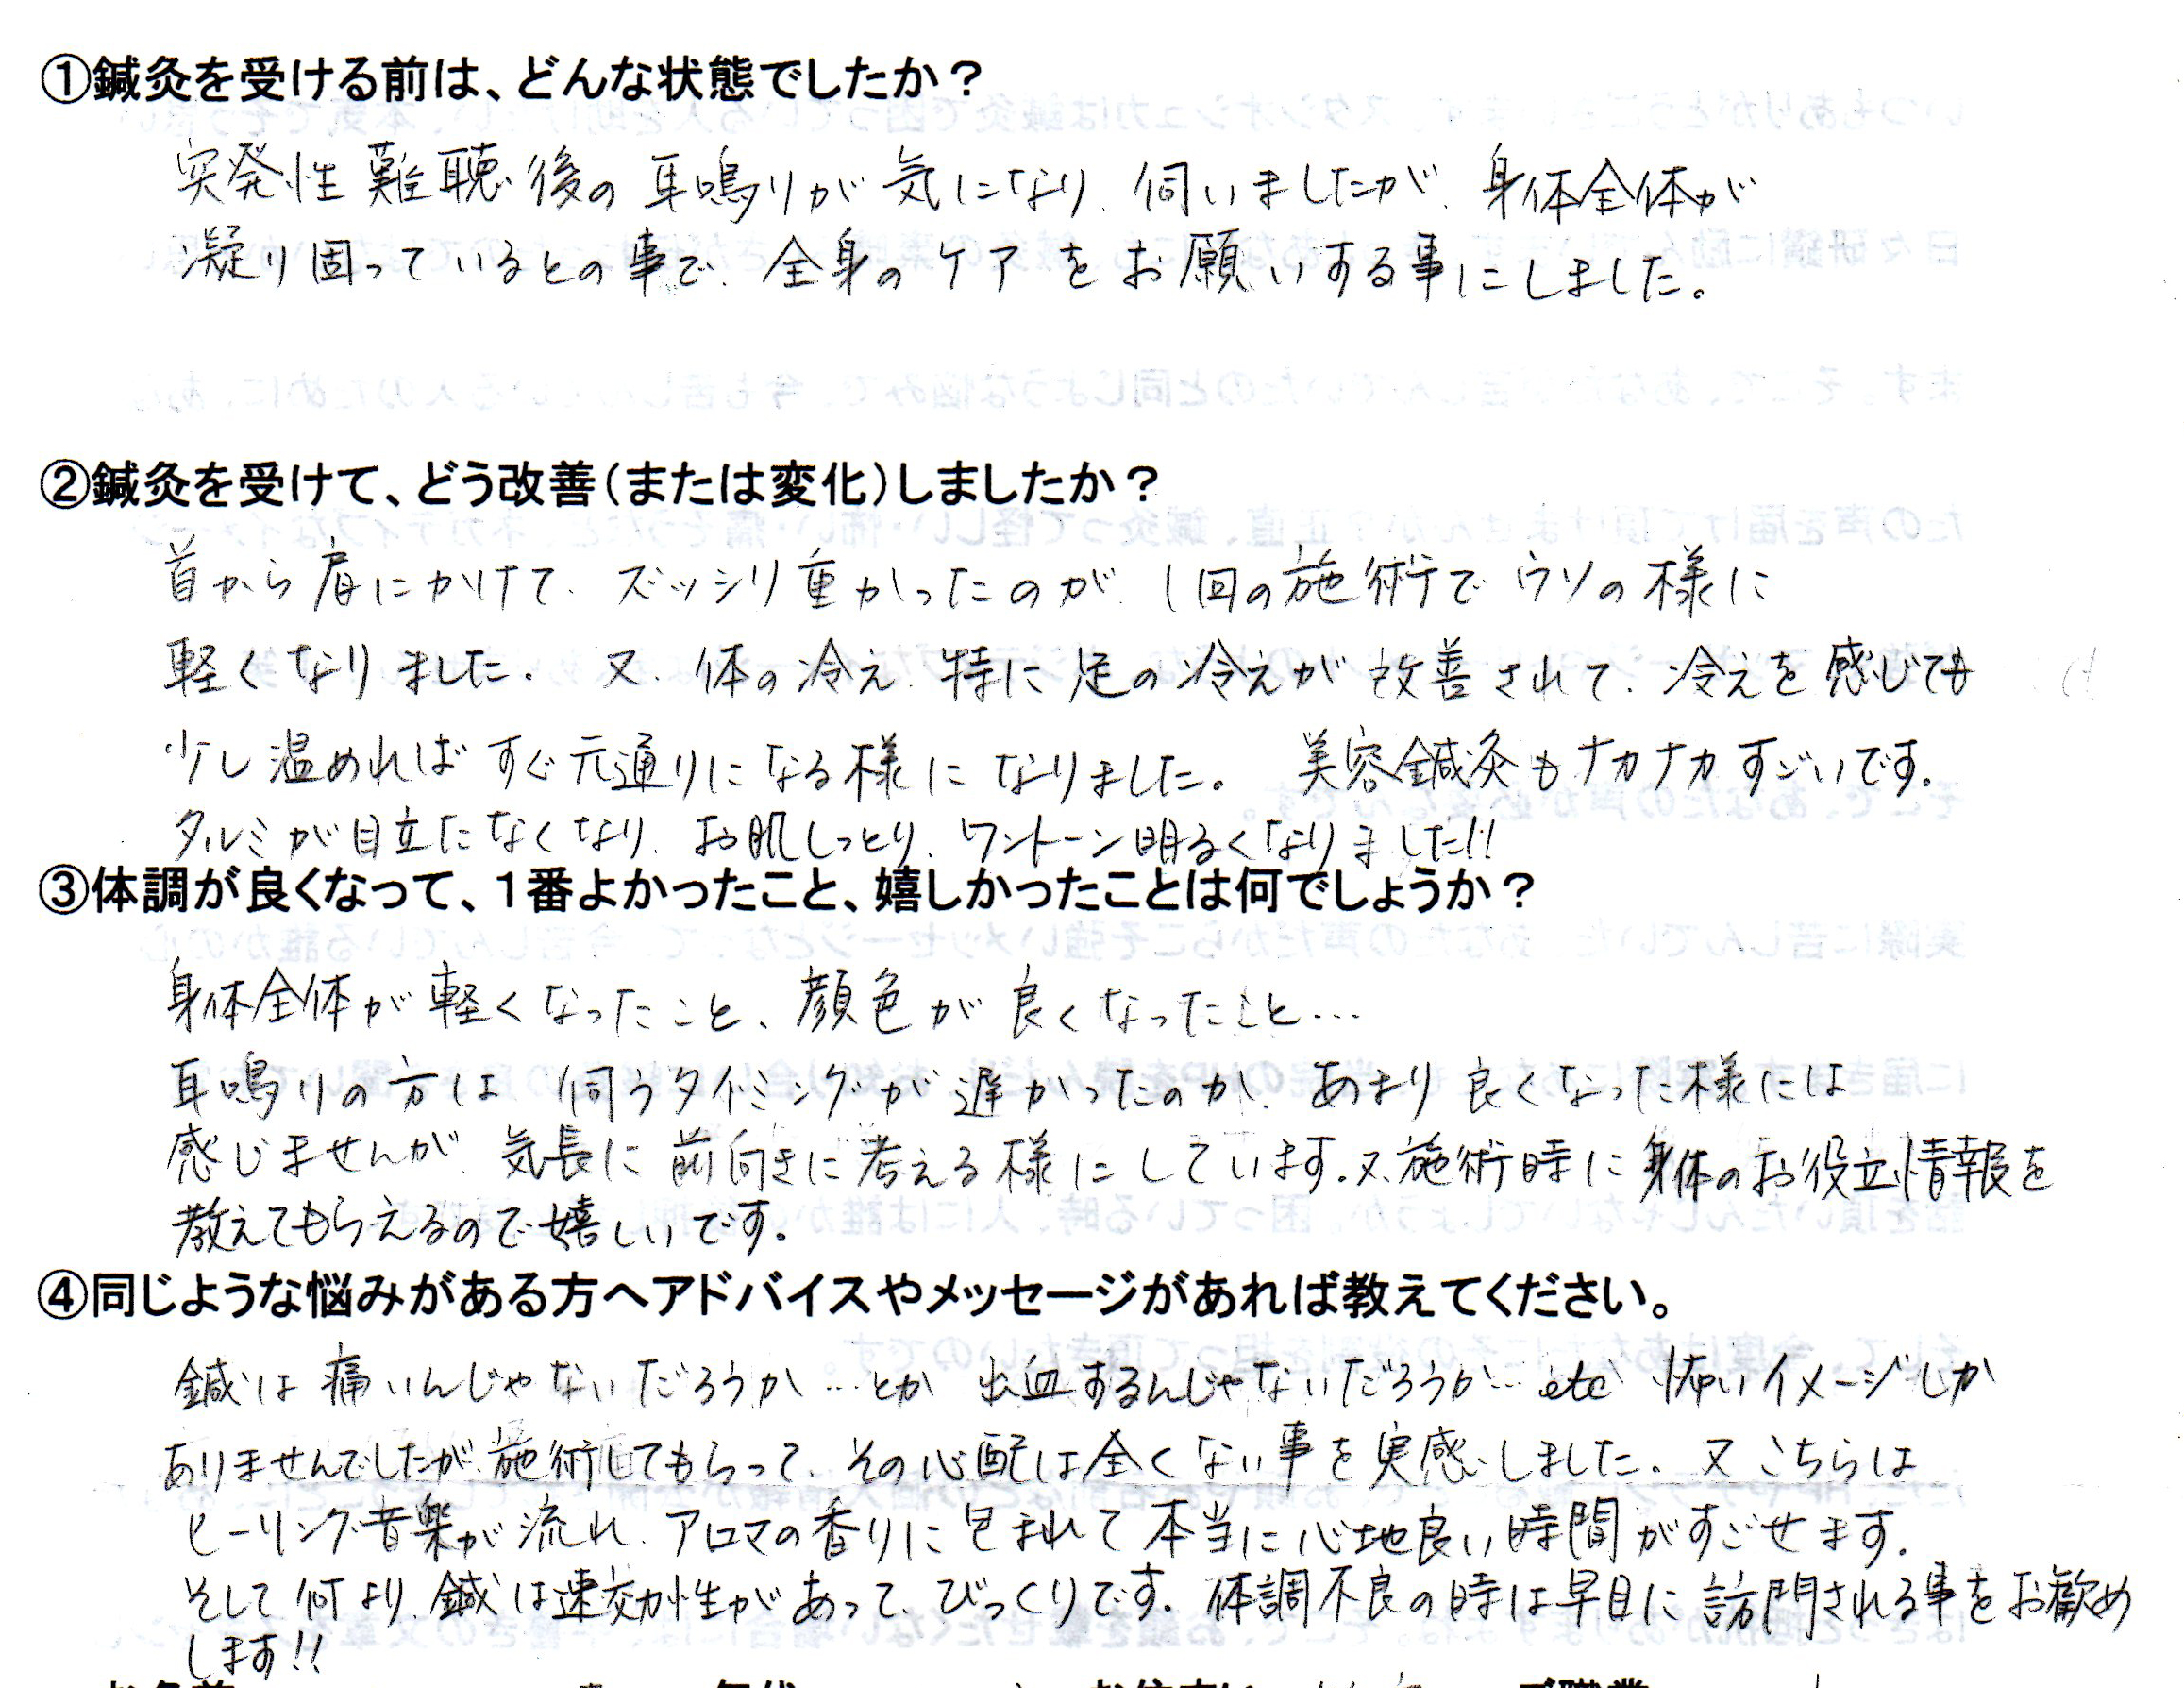 ①鍼灸を受ける前は、どんな状態でしたか？
突発性難聴後の耳鳴りが気になり、伺いましたが、身体全体が
凝り固っているとの事で、全身のケアをお願いする事にしました。
②鍼灸を受けて、どう改善(または変化)しましたか？
首から肩にかけて、ズッシリ重かったのが、1回の施術でウソの様に
軽くなりました. 又、体の冷え、特に足の冷えが改善されて、冷えを感じても
少し温めればすぐ元通りになる様になりました。 美容鍼灸もナカナカすごいです.
タルミが目立たなくなり、お肌しっとり、ワントーン明るくなりました!!
③体調が良くなって、1番よかったこと、嬉しかったことは何でしょうか？
身体全体が軽くなったこと、顔色が良くなったこと…
耳鳴りの方は 伺うタイミングが遅かったのか、あまり良くなった様には
感じませんが、気長に前向きに考える様にしています. 又、施術時に身体のお役立情報を
教えてもらえるので嬉しいです.
④同じような悩みがある方へアドバイスやメッセージがあれば教えてください。
鍼は痛いんじゃないだろうか…とか 出血するんじゃないだろうか…etc 怖いイメージしか
ありませんでしたが、施術してもらって、その心配は全くない事を実感しました. 又こちらは
ヒーリング音楽が流れ、アロマの香りに包まれて本当に心地良い時間がすごせます.
そして何より、鍼は速効性があって、びっくりです. 体調不良の時は早目に訪問される事をお歓め
します!!